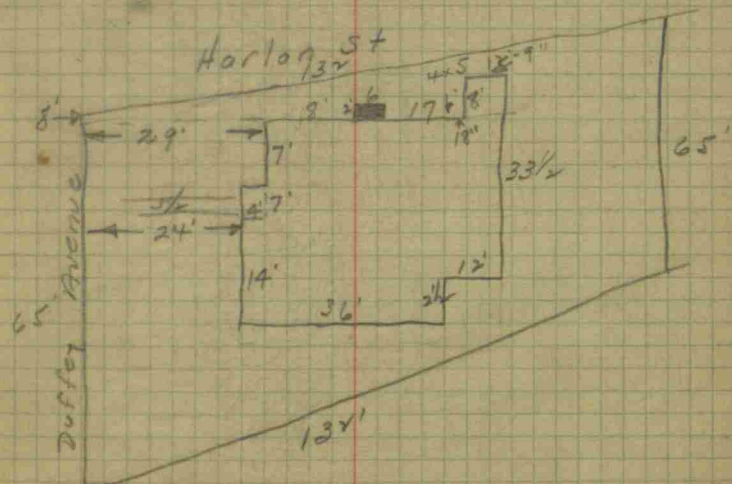 Harlan St
132
4x5
12'-9"
8'
8'
2'
6
17
8'
18"
29'
7'
33 1/2
65'
5 1/2
4'
7'
24'
14'
12'
2 1/2
36'
65'
Duffey Avenue
132'